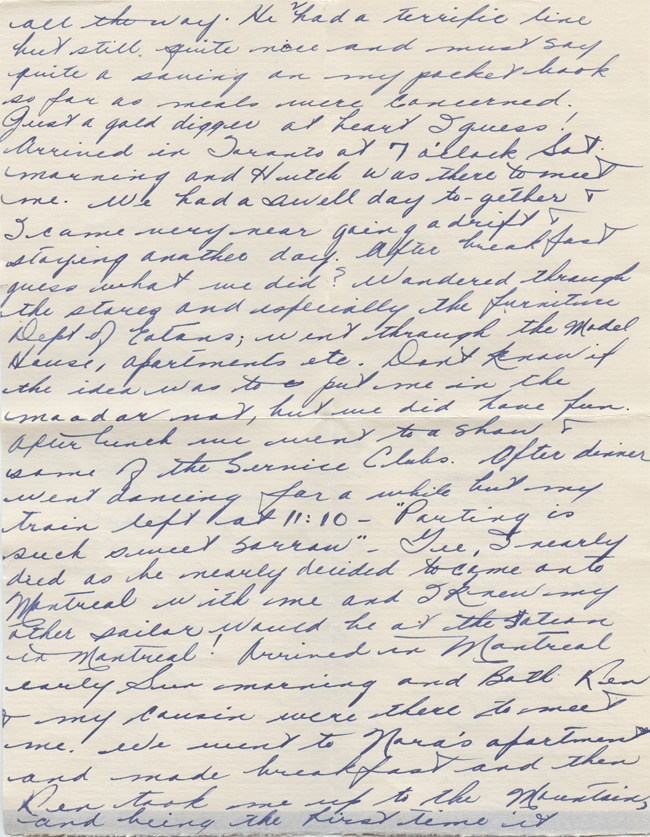 all the way. He had a terrific line
but still quite nice and must say
quite a saving on my pocket book
so far as meals were concerned.
Just a gold digger at heart I guess!
Arrived in Toronto at 7 o'clock Sat.
morning and Hutch was there to meet
me. We had a swell day to-gether &
I came very near going adrift &
staying another day. After breakfast
guess what we did? Wandered through
the stores and especially the furniture
Dept of Eatons; went through the Model
House, apartments etc. Don't know if
the idea was to put me in the
mood or not, but we did have fun.
After lunch we went to a show &
some of the Service Clubs. After dinner
went dancing for a while but my
train left at 11:10 - "Parting is
such sweet sorrow" - Gee, I nearly
died as he nearly decided to come on to
Montreal with me and I knew my
other sailor would be at the station
in Montreal! Arrived in Montreal
early Sun morning and Both Ken
& my cousin were there to meet
me. We went to Nora's apartment
and made breakfast and then
Ken took me up to the Mountain,
and being the first time it